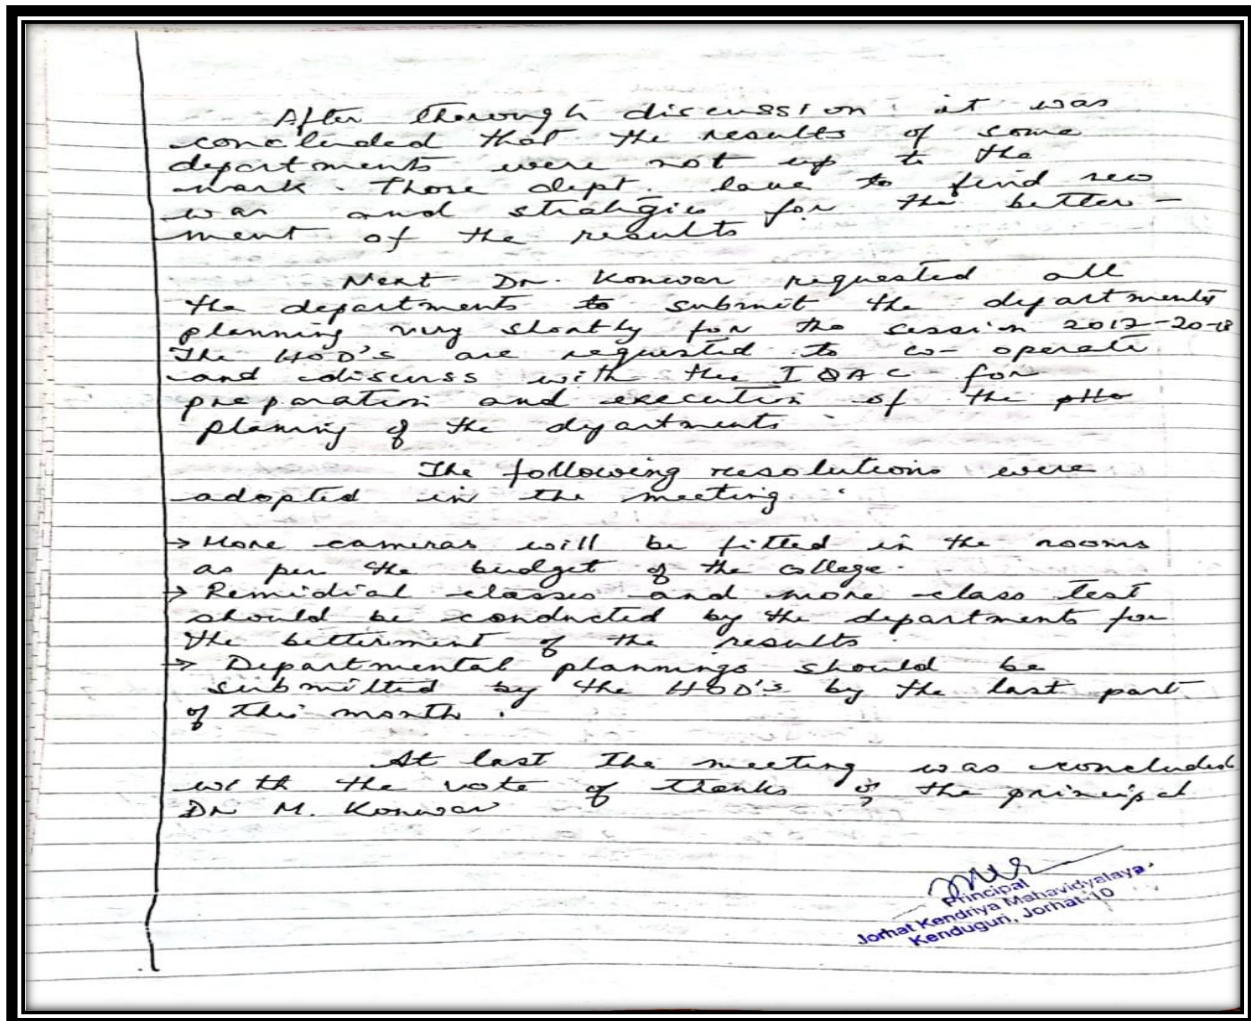 After thorough discussion it was
concluded that the results of some
departments were not up to the
mark. Those dept. have to find new
was and strategies for the better-
ment of the results
Next Dr. Konwar requested all
the departments to submit the departments
planning very shortly for the session 2017-20-18
The HOD's are requested to co-operate
and discuss with the IQAC for
preparation and execution of the
planning of the departments
The following resolutions were
adopted in the meeting.
→ More cameras will be fitted in the rooms
as per the budget of the college.
→ Remidial classes and more class test
should be conducted by the departments for
the betterment of the results
→ Departmental plannings should be
submitted by the HOD's by the last part
of this month.
At last the meeting was concluded
with the vote of thanks of the principal
Dr M. Konwar
Principal
Jorhat Kendriya Mahavidyalaya
Kenduguri, Jorhat-10